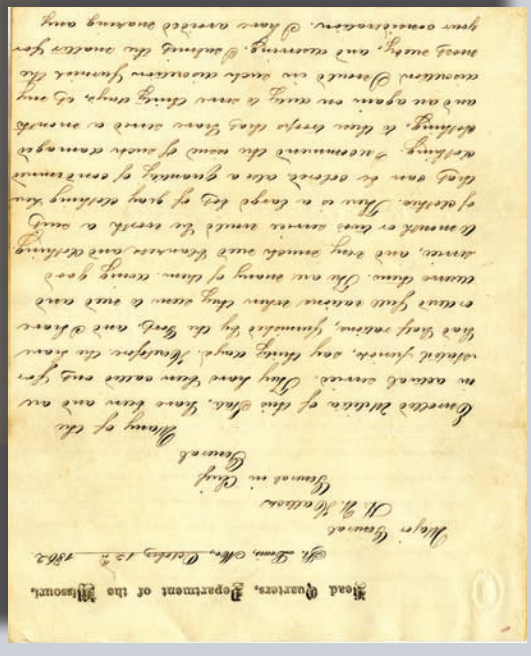 Head Quarters, Department of the Missouri,
St. Louis, Mo., October 13th 1862.
Major General
H. W. Halleck
General in Chief
General
Many of the
Enrolled Militia of this State, have been and are
in actual service. They have been called out for
stated periods, say thirty days. Heretofore they have
had half rations, furnished by the Govt, and I have
ordered full rations when they seem to need and
deserve them. There are many of them doing good
service, and they much need blankets and clothing
A month or two's service would be worth a suit
of clothes. There is a large lot of gray clothing here
that can be colored also a quantity of condemned
clothing. I recommend the issue of such damaged
clothing, to those troops that have served a month
and are again on duty to serve thirty days, at my
discretion. I would in such discretion furnish the
most needy, and deserving. I submit the matter for
your consideration. I have avoided making any